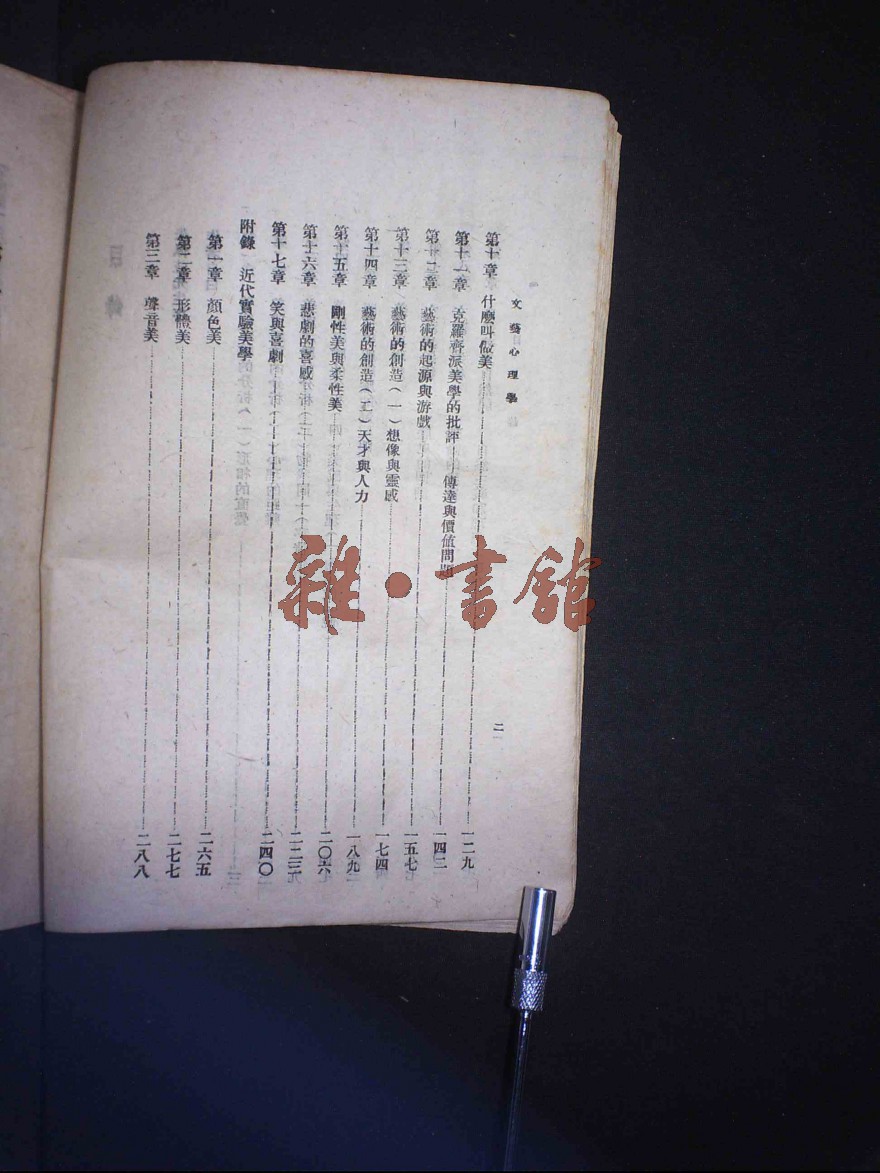 文藝心理學
二
第十章 什麼叫做美……一二九
第十一章 克羅齊派美學的批評——傳達與價值問題……一四二
第十二章 藝術的起源與游戲……一五七
第十三章 藝術的創造（一）想像與靈感……一七四
第十四章 藝術的創造（二）天才與人力……一八九
第十五章 剛性美與柔性美……二〇六
第十六章 悲劇的喜感……二二三
第十七章 笑與喜劇……二四〇
附錄 近代實驗美學
第一章 顏色美……二六五
第二章 形體美……二七七
第三章 聲音美……二八八
雜·書館